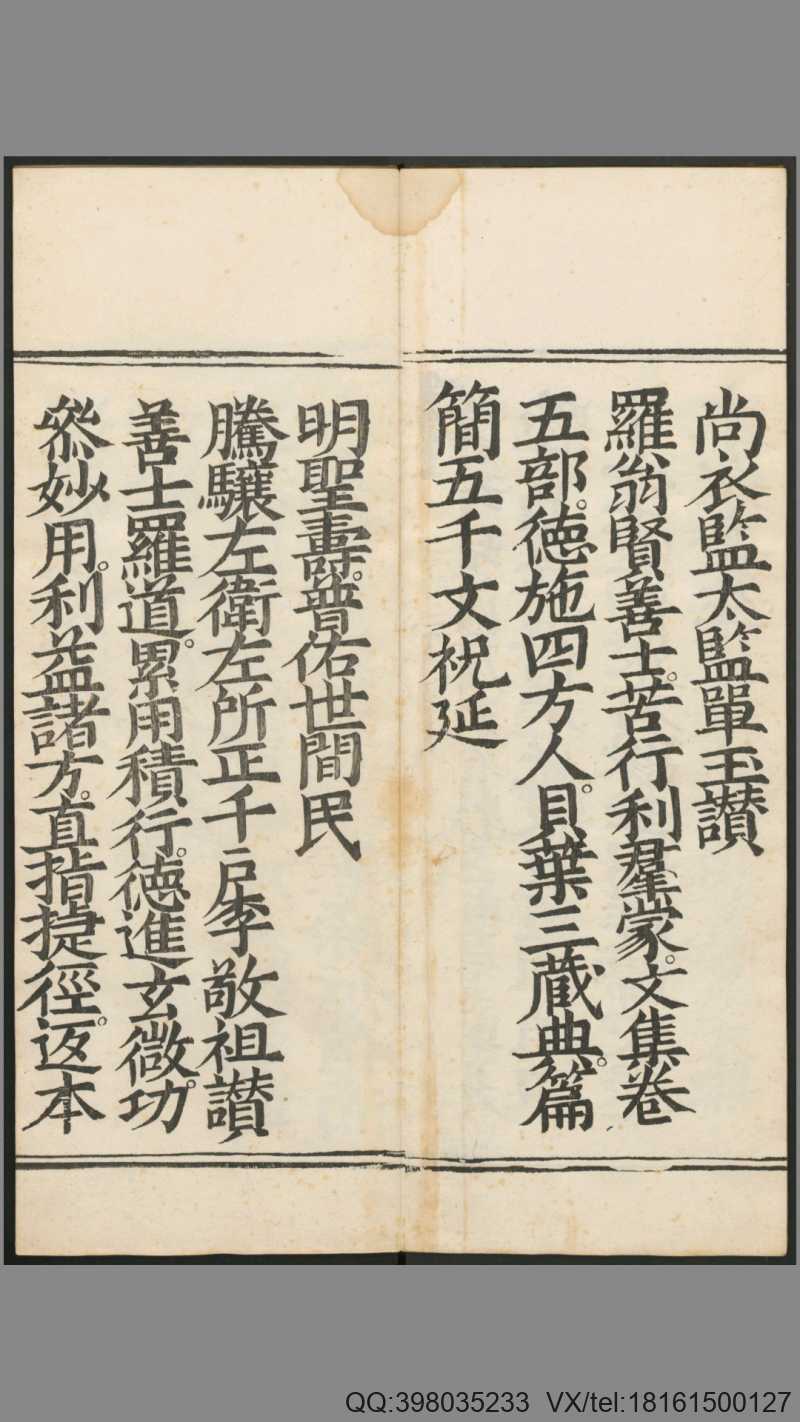 尚衣監太監單玉讃
羅翁賢善士。苦行利羣蒙。文集卷
五部。德施四方人。貝葉三藏典。篇
簡五千文祝延
明聖壽。普佑世間民
騰驤左衛左所正千戶李敬祖讃
善士羅道。累用積行。德進玄微。功
叅妙用。利益諸方。直指捷徑。返本
QQ:398035233 VX/tel:18161500127